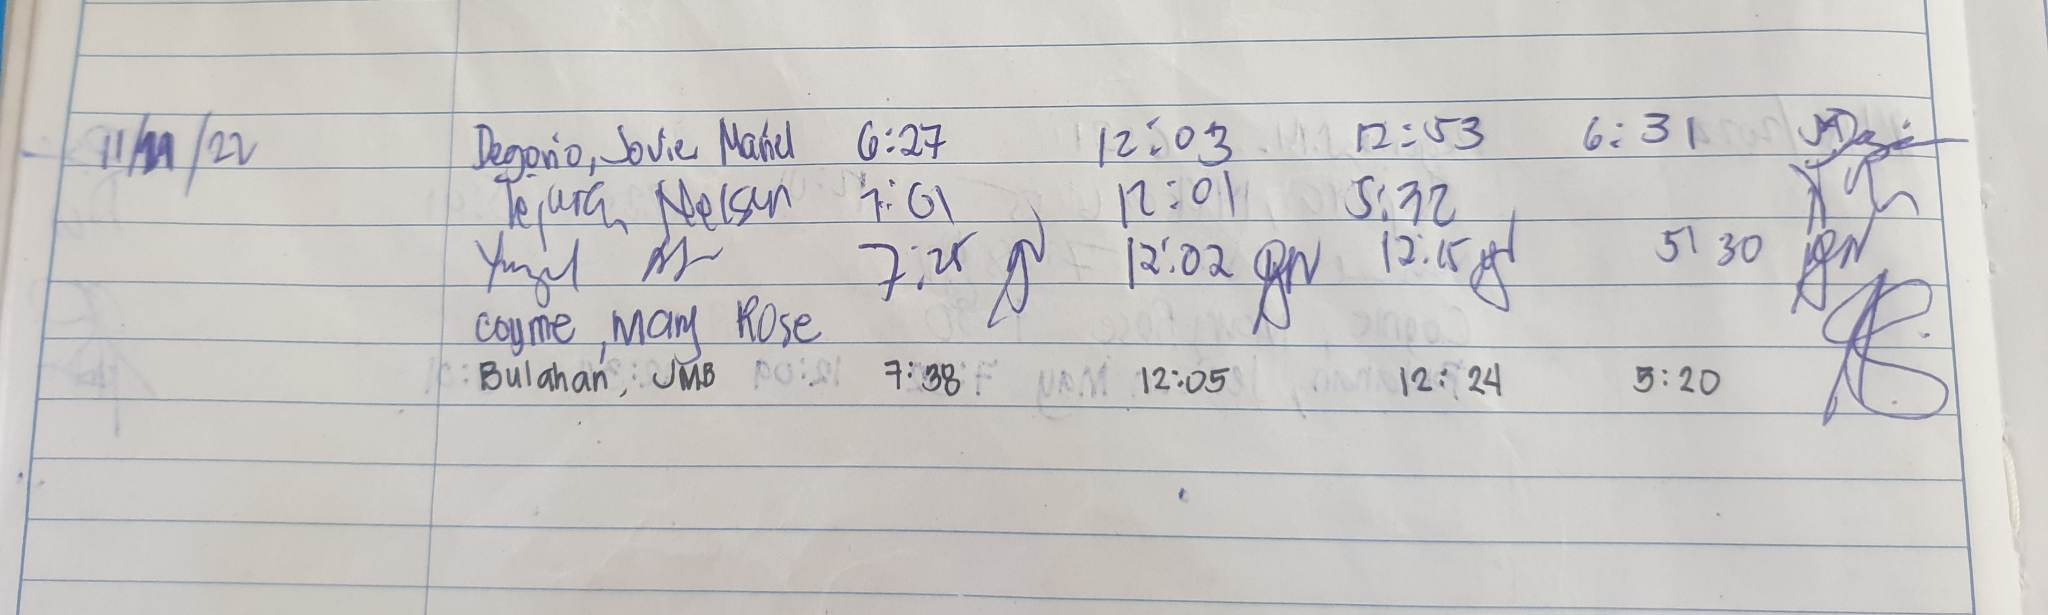 11/11/22 Degorio, Jovie Mariel 6:27 12:03 12:53 6:31
Tejura, Nelson 7:01 12:01 5:32
7:25 12:02 12:15 5:30
Coyme, Mary Rose
Bulahan, JMB 7:38 12:05 12:24 5:20